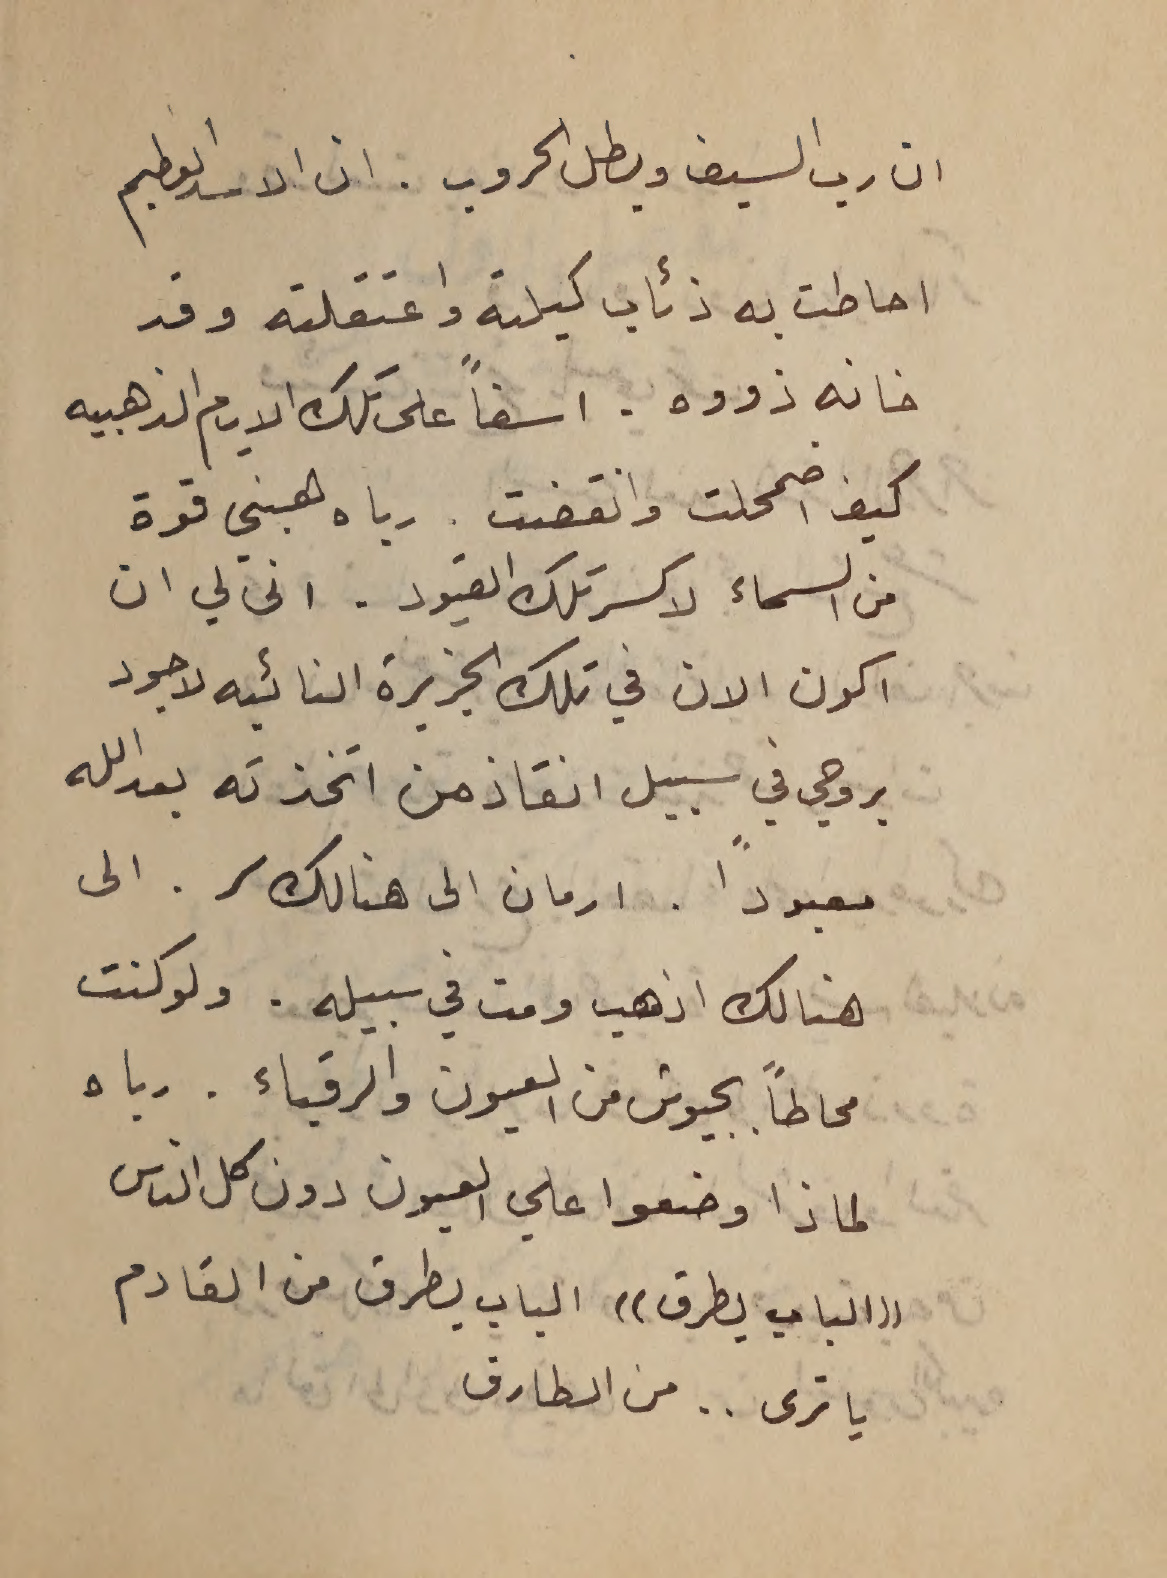 ان رب السيف وبطل الحروب . ان الاسد العظيم
احاطت به ذئاب كيلته واعتقلته وقد
خانه ذووه . اسفاً على تلك الايام الذهبيه
كيف اضمحلت وانقضت . رباه هبني قوة
من السماء لاكسر تلك القيود . انى لي ان
اكون الان في تلك الجزيرة النائيه لاجود
بروحي في سبيل انقاذ من اتخذته بعد الله
معبوداً . ارمان الى هنالك سر . الى
هنالك اذهب ومت في سبيله . ولو كنت
محاطاً بجيوش من العيون والرقباء . رباه
لماذا وضعوا علي العيون دون كل الناس
«الباب يطرق» الباب يطرق من القادم
يا ترى .. من الطارق